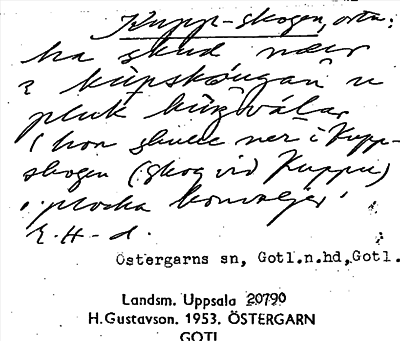 Kupp-skogen, ortn:
ha skud nær
i kúpskougan u
pluk kúŋvålar
'hon skulle ner i Kupp-
skogen (skog vid Kuppu)
o. plocka konvaljer'
E.H-d.
Östergarns sn, Gotl.n.hd,Gotl.
Landsm. Uppsala 20790
H.Gustavson. 1953. ÖSTERGARN
GOTL